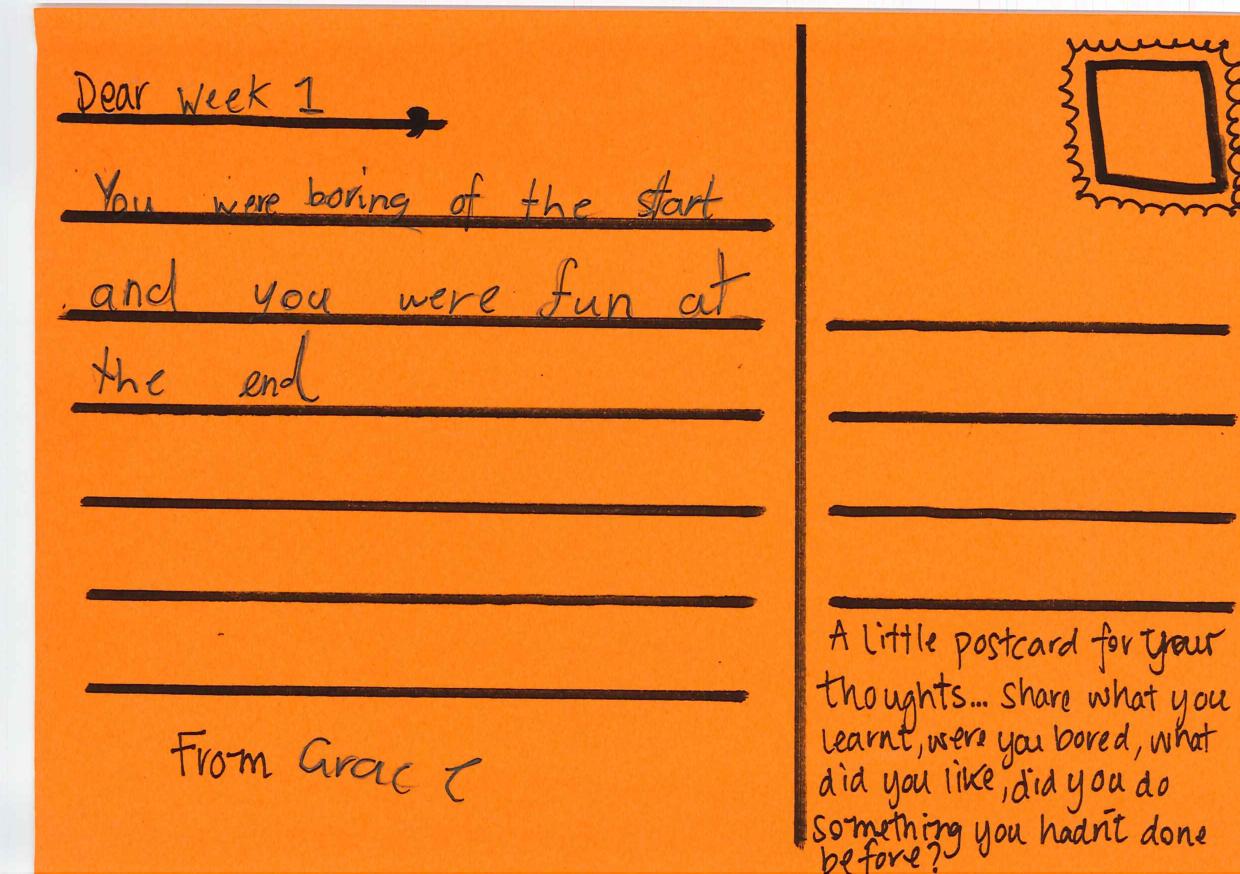 Dear Week 1,
You were boring of the start
and you were fun at
the end
From Grace
A little postcard for your
thoughts... Share what you
learnt, were you bored, what
did you like, did you do
something you hadn't done
before?